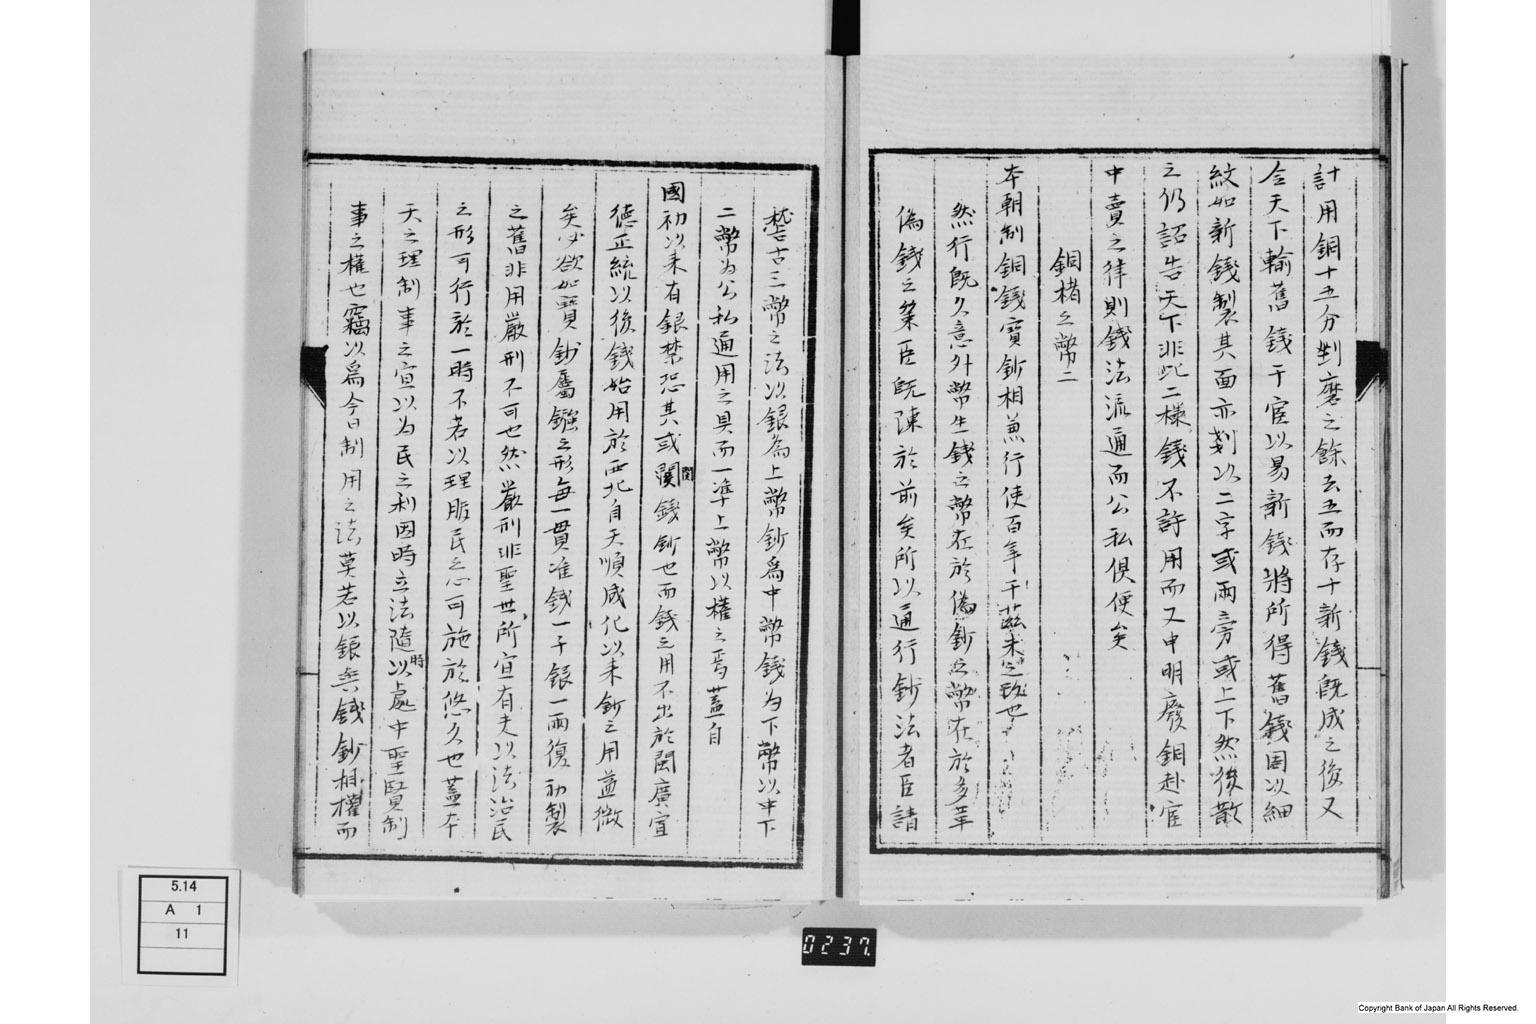 計用銅十五分剉磨之餘去五而存十新錢既成之後又
令天下輸舊錢于官以易新錢將所得舊錢周以細
紋如新錢製其面亦剗以二字或兩旁或上下然後散
之仍詔告天下非此二樣錢不許用而又申明廢銅赴官
中賣之律則錢法流通而公私俱便矣
銅楮之幣二
本朝制銅錢寶鈔相兼行使百年于茲未之改也
然行既久意外幣生錢之幣在於偽鈔之幣在於多革
偽錢之策臣既陳於前矣所以通行鈔法者臣請
稽古三幣之法以銀為上幣鈔為中幣錢為下幣以中下
二幣為公私通用之具而一準上幣以權之焉蓋自
國初以来有銀禁恐其或閡錢鈔也而錢之用不出於閩廣宣
閡
德正統以後錢始用於西北自天順成化以来鈔之用益微
矣必欲如寶鈔屬鏹之形每一貫准錢一千銀一兩復初製
之舊非用嚴刑不可也然嚴刑非聖世所宜有夫以法治民
之形可行於一時不若以理服民之心可施於悠久也蓋本
天之理制事之宜以為民之利因時立法隨以處中聖賢制
時
事之權也竊以為今日制用之法莫若以銀與錢鈔相權而
5.14
A 1
11
0237.
Copyright Bank of Japan All Rights Reserved.